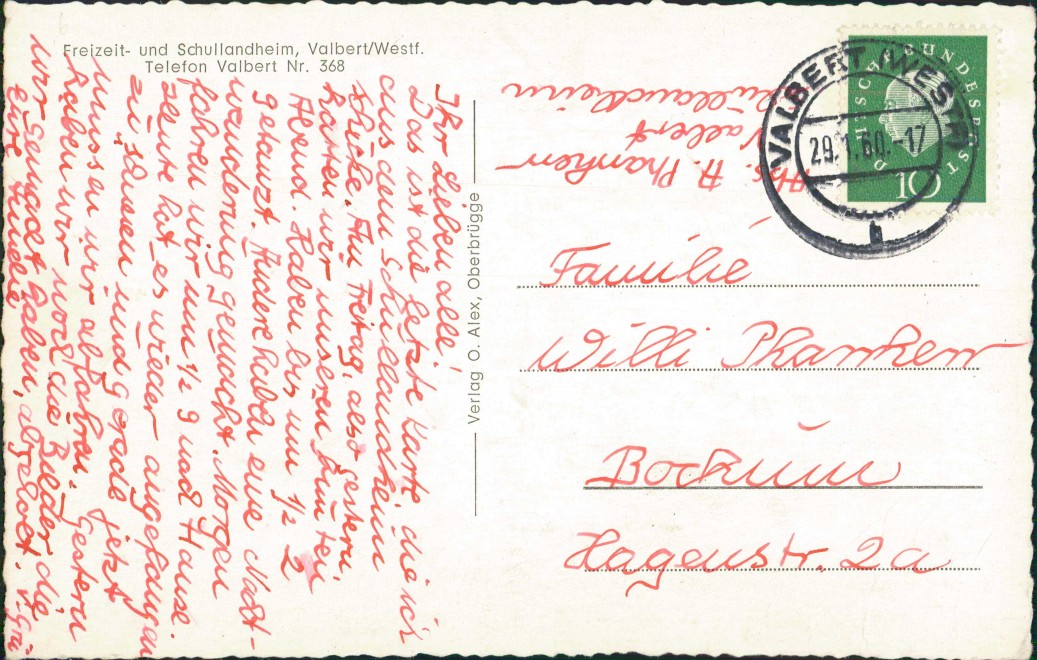 Freizeit- und Schullandheim, Valbert/Westf.
Telefon Valbert Nr. 368
Ihr Lieben alle!
Das ist die letzte Karte die ich
aus dem Schullandheim
schicke. Am Freitag, also gestern,
hatten wir unseren bunten
Abend. Haben bis um 1/2 2
getanzt. Andere haben eine Nacht-
wanderung gemacht. Morgen
fahren wir um 1/2 9 nach Hause.
Heute hat es wieder angefangen
zu schneien und gerade jetzt
müssen wir abfahren. Gestern
haben wir noch die Bilder die
wir gemacht haben, abgeholt.
Eure
Verlag O. Alex, Oberbrügge
Abs. H. Phanken
Valbert
Schullandheim
DEUTSCHE BUNDESPOST
10
VALBERT (WESTF)
29.1.60.-17
b
Familie
Willi Phanken
Bockum
Hagenstr. 2a